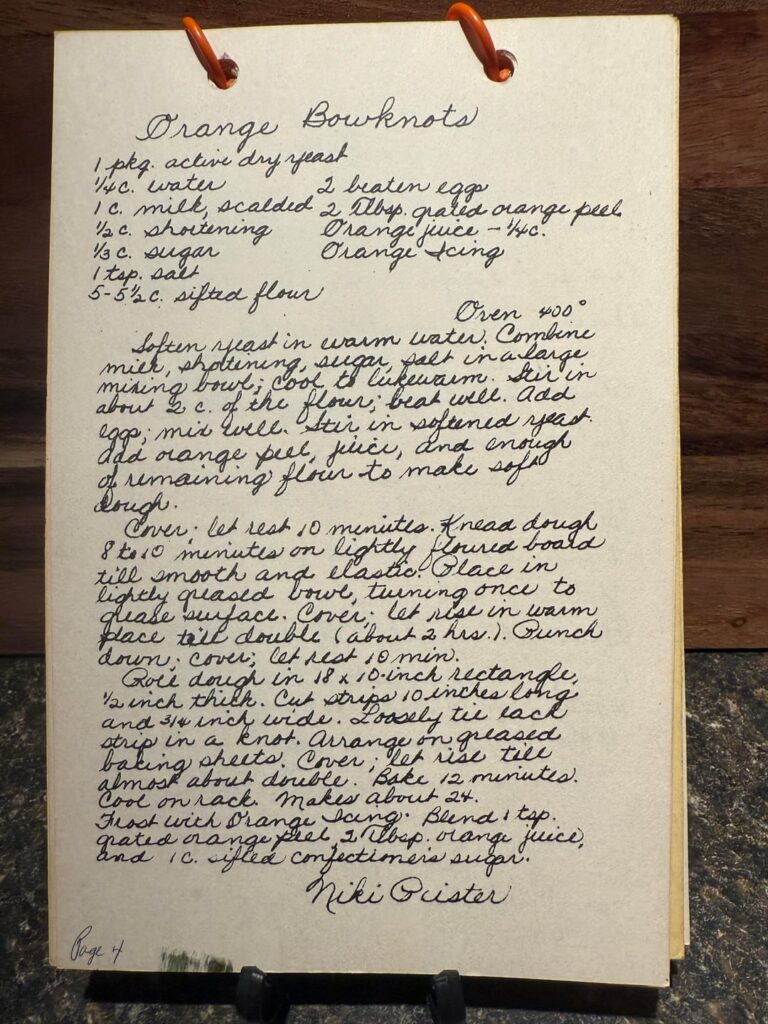 Orange Bowknots
1 pkg. active dry yeast
1/4 c. water 2 beaten eggs
1 c. milk, scalded 2 Tlbsp. grated orange peel
1/2 c. shortening Orange juice - 1/4 c.
1/3 c. sugar Orange Icing
1 tsp. salt
5-5 1/2 c. sifted flour
Oven 400°
Soften yeast in warm water. Combine
milk, shortening, sugar, salt in a large
mixing bowl; cool to lukewarm. Stir in
about 2 c. of the flour; beat well. Add
eggs; mix well. Stir in softened yeast.
Add orange peel, juice, and enough
of remaining flour to make soft
dough.
Cover; let rest 10 minutes. Knead dough
8 to 10 minutes on lightly floured board
till smooth and elastic. Place in
lightly greased bowl, turning once to
grease surface. Cover; let rise in warm
place till double (about 2 hrs.). Punch
down; cover; let rest 10 min.
Roll dough in 18 x 10-inch rectangle,
1/2 inch thick. Cut strips 10 inches long
and 3/4 inch wide. Loosely tie each
strip in a knot. Arrange on greased
baking sheets. Cover; let rise till
almost about double. Bake 12 minutes.
Cool on rack. Makes about 24.
Frost with Orange Icing. Blend 1 tsp.
grated orange peel, 2 Tlbsp. orange juice,
and 1 c. sifted confectioner's sugar.
Niki
Page 4